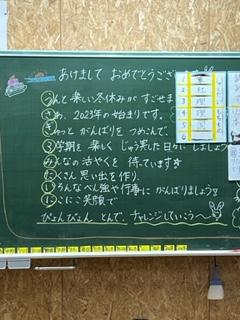 あけまして おめでとうござい
うんと楽しい冬休みが すごせま
さあ、2023年の始まりです。
ぎゅっと がんばりを つめこんで、
③学期を 楽しく じゅう実した日々に しましょう
みんなの活やくを 待っています
たくさん思い出を作り、
いろんなべん強や行事に がんばりましょう!
にこにこ笑顔で
ぴょんぴょん とんで、チャレンジしていこう〜
1
2 社
3 理
4 理
5
6